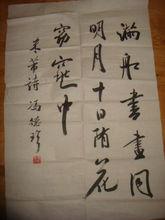 滿船書畫同
明月十日随花
窈窕中
米芾詩 馮德